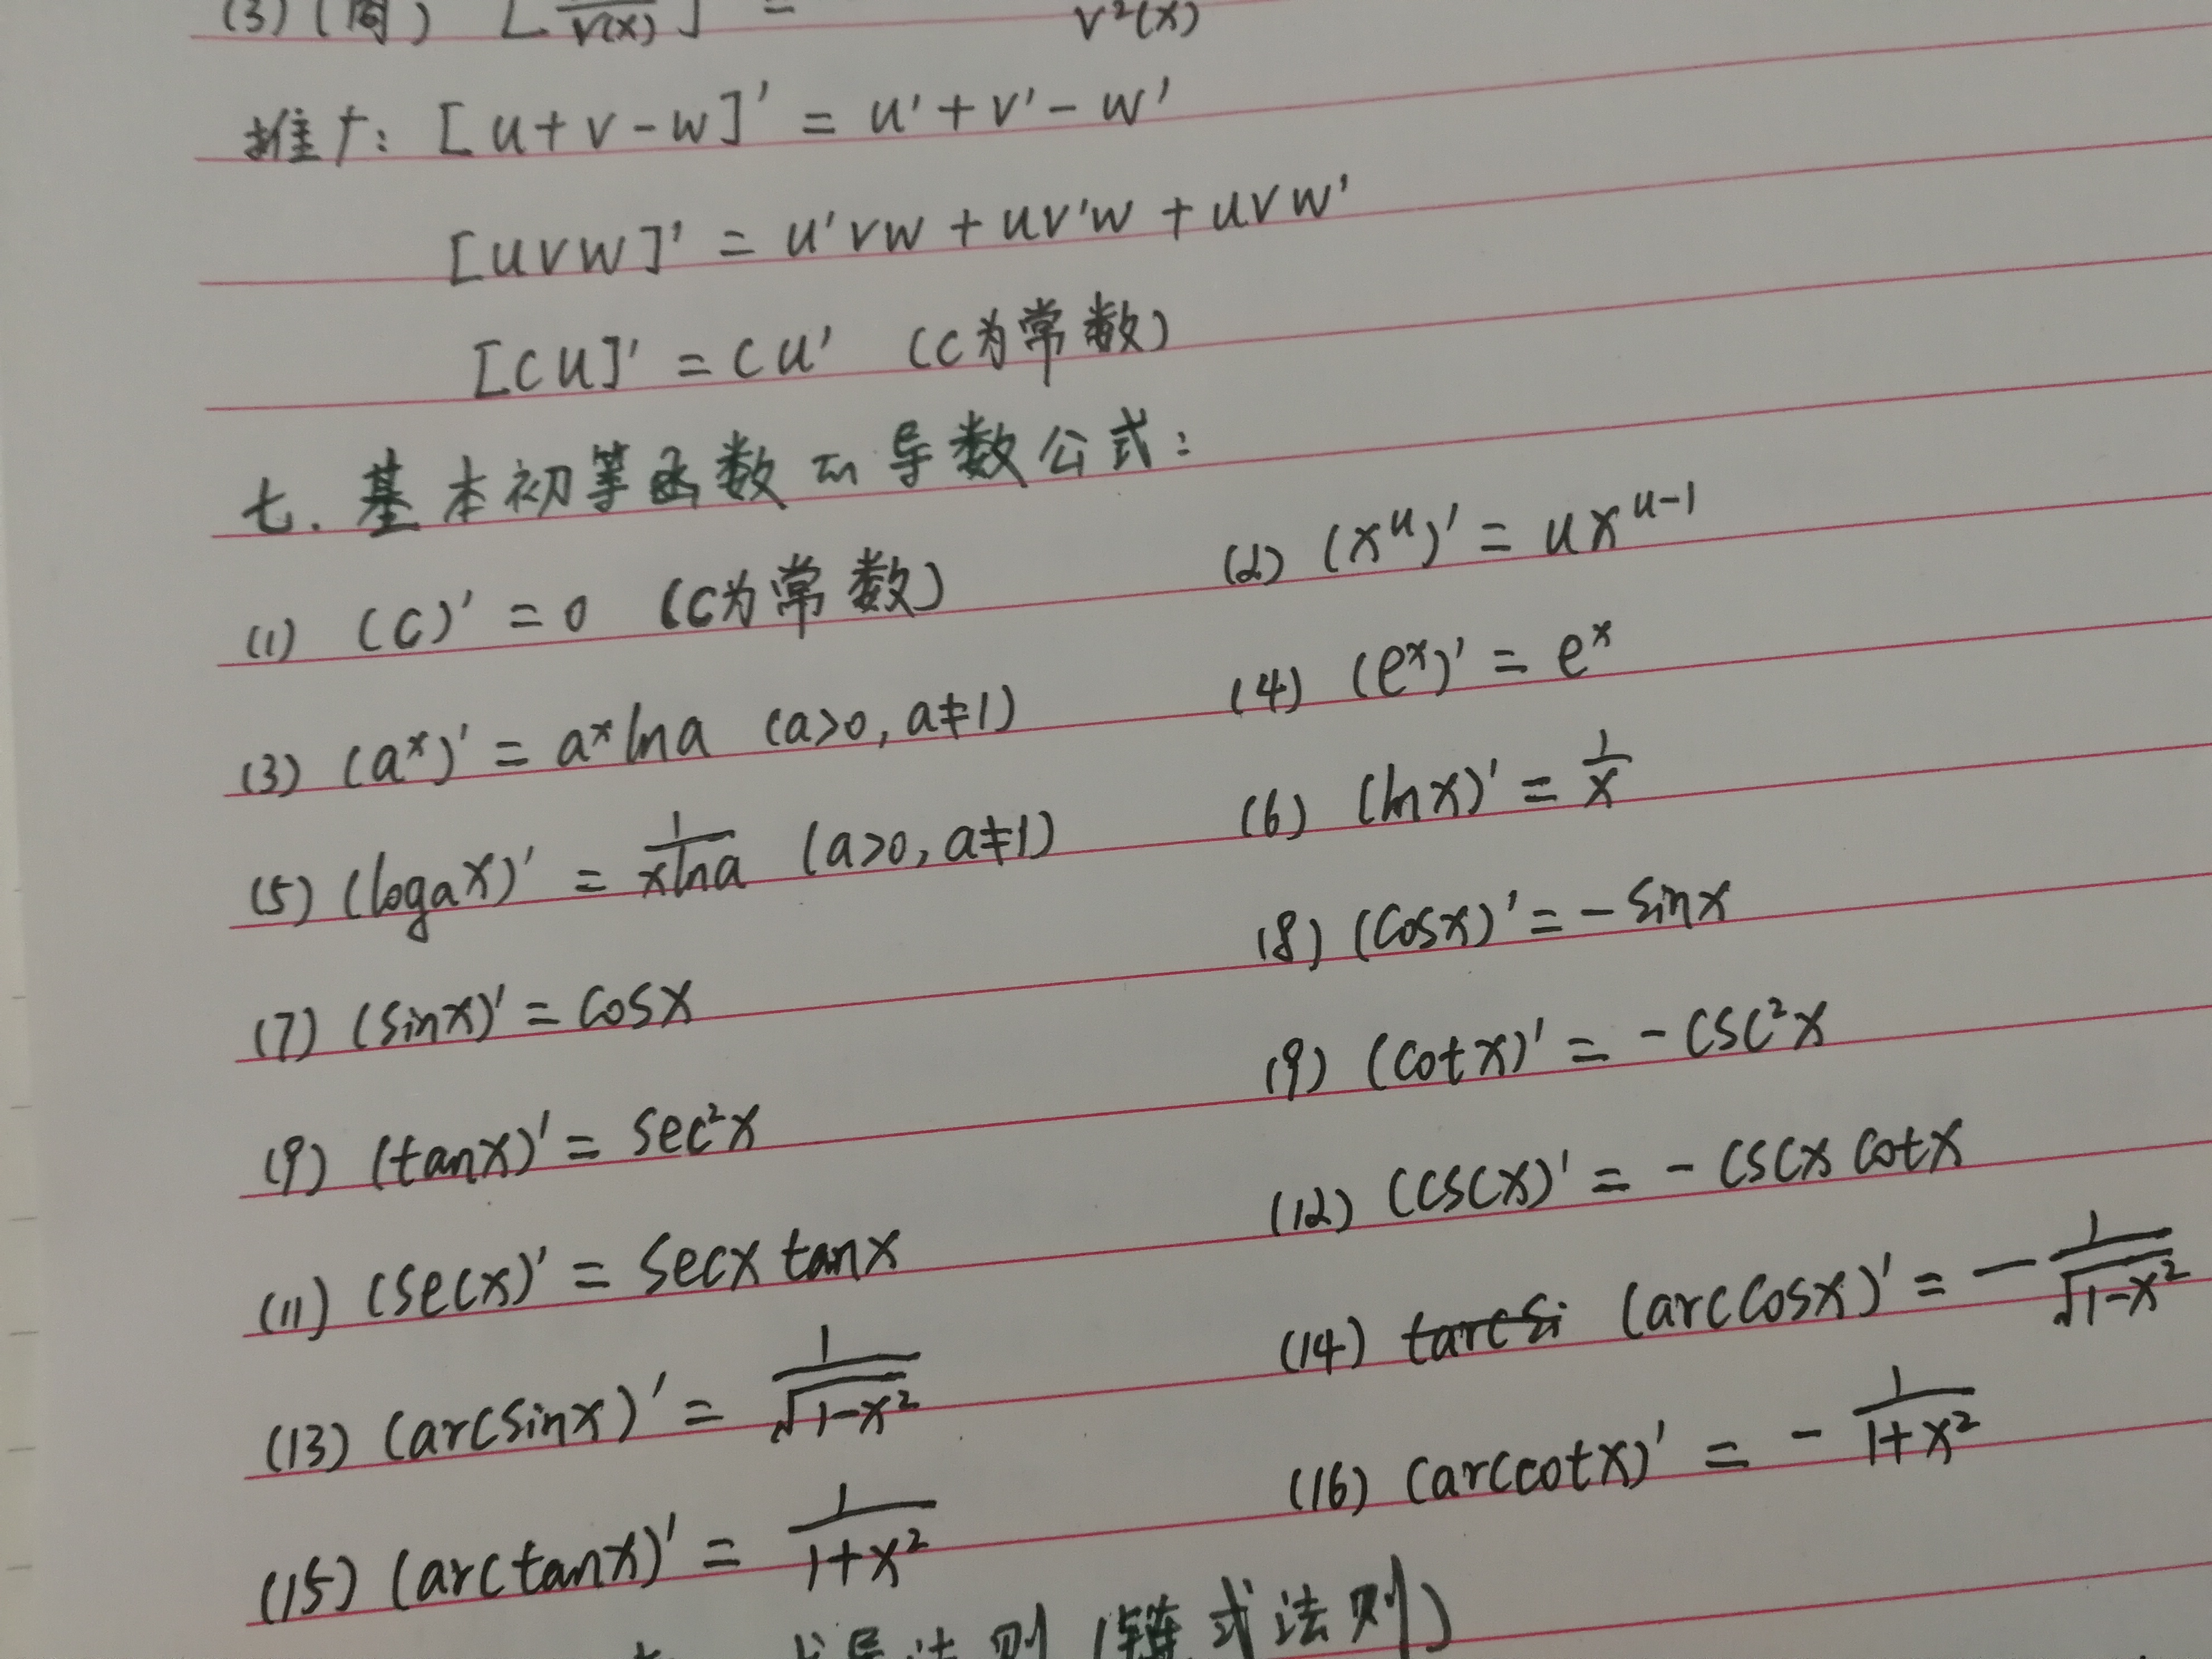 (3) (商) [ / v(x) ] = v²(x)
推广: [u+v-w]' = u'+v'-w'
[uvw]' = u'vw + uv'w + uvw'
[cu]' = cu' (c为常数)
七. 基本初等函数的导数公式:
(1) (c)' = 0 (c为常数) (2) (x^u)' = ux^(u-1)
(3) (a^x)' = a^x lna (a>0, a≠1) (4) (e^x)' = e^x
(5) (logax)' = 1/(xlna) (a>0, a≠1) (6) (lnx)' = 1/x
(7) (sinx)' = cosx (8) (cosx)' = -sinx
(9) (tanx)' = sec²x (9) (cotx)' = -csc²x
(11) (secx)' = secx tanx (12) (cscx)' = -cscx cotx
(13) (arcsinx)' = 1/√(1-x²) (14) (arccosx)' = -1/√(1-x²)
(15) (arctanx)' = 1/(1+x²) (16) (arccotx)' = -1/(1+x²)
导法则 (链式法则)